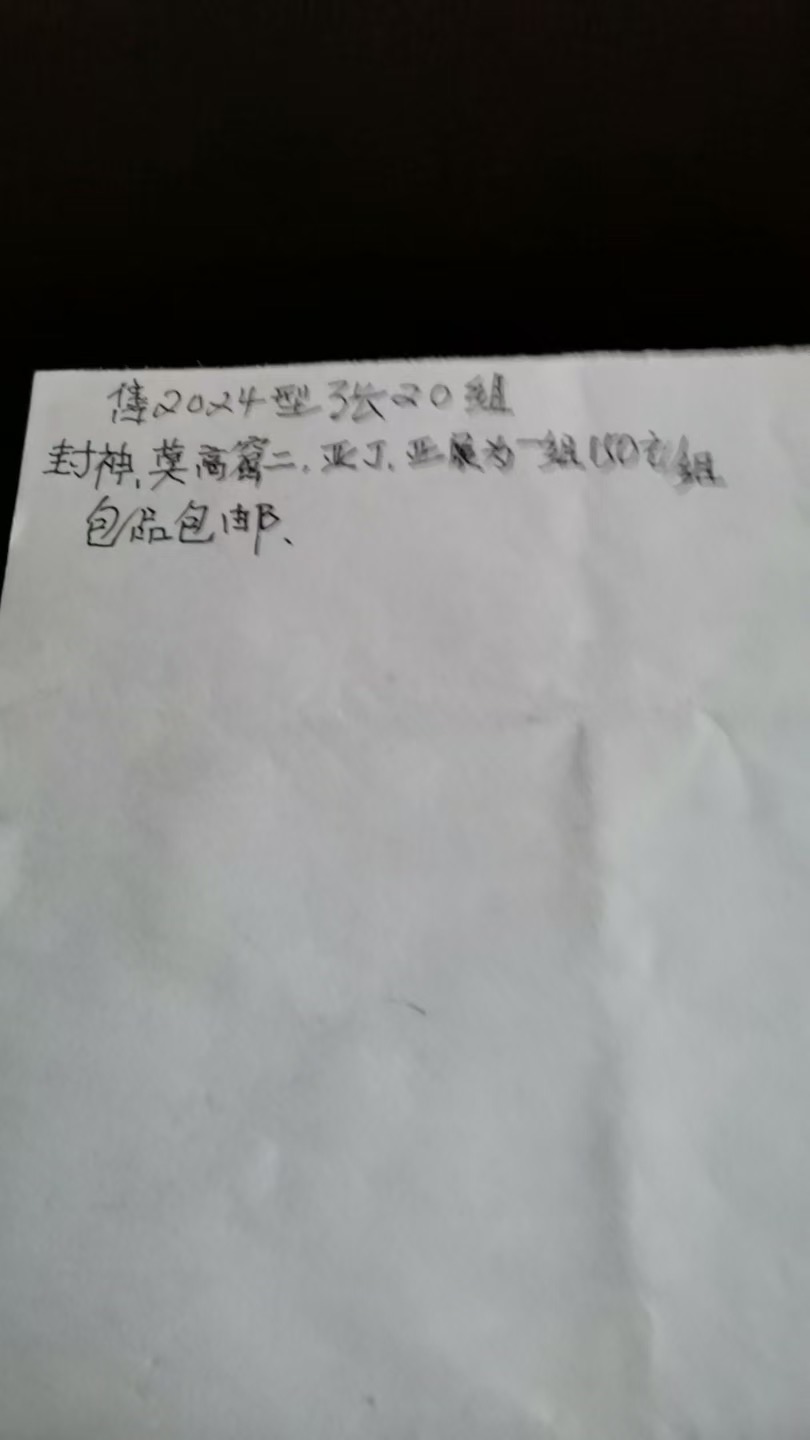 售2024型张20组
封神、莫高窟二、亚丁、亚展为一组150元/组
包品包邮、